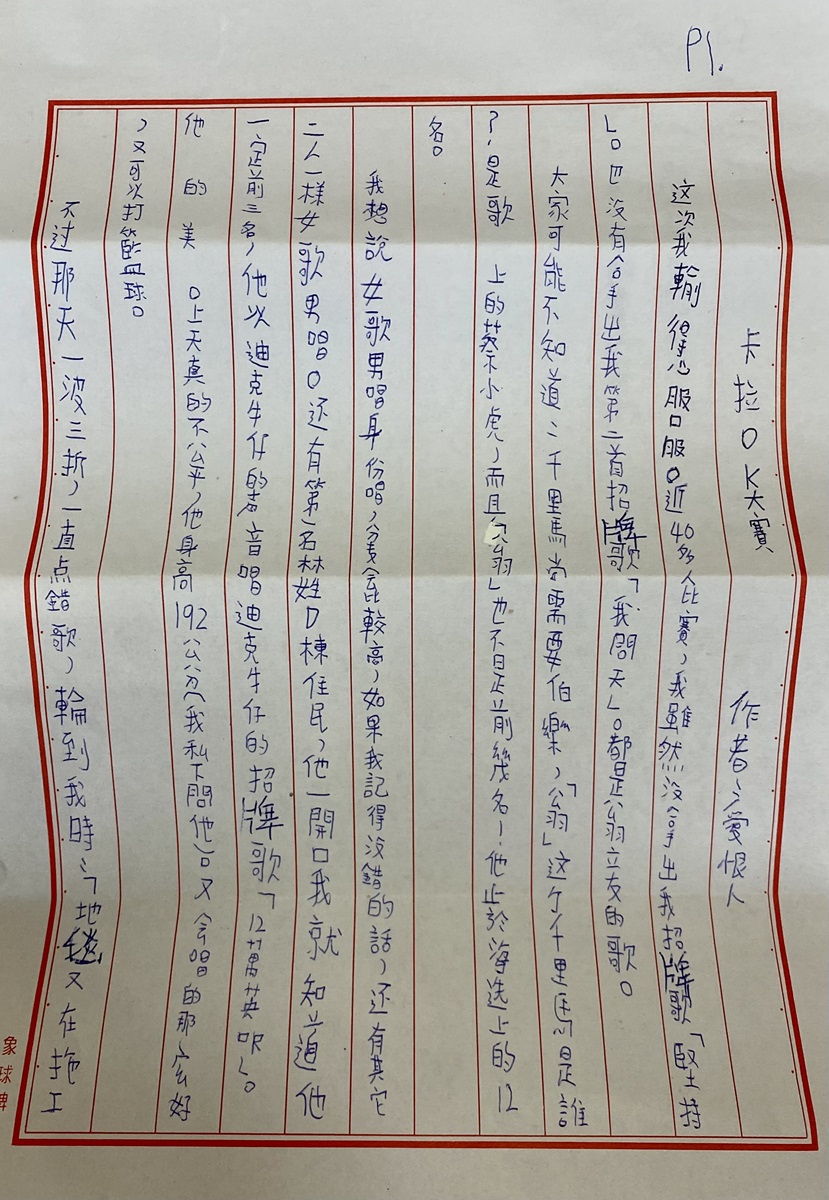 P1.
卡拉OK大賽
作者:愛恨人
这次我輸得心服口服。近40多人比賽,我雖然没拿出我招牌歌「堅持
」。也没有拿出我第二首招牌歌「我問天」。都是翁立友的歌。
大家可能不知道:千里馬尚需要伯樂,「翁」这个千里馬是誰
?是歌 上的蔡小虎,而且「翁」也不是前幾名!他止於海选上的12
名。
我想說女歌男唱身份唱,分義会比較高,如果我記得没錯的話,还有其它
二人一樣女歌男唱。还有第一名林姓D棟住民,他一開口我就知道他
一定前三名,他以迪克牛仔的声音唱迪克牛仔的招牌歌「12萬英呎」。
他 的 美 。上天真的不公平,他身高192公分(我私下問他)又会唱的那么好
,又可以打籃球。
不过那天一波三折,一直点錯歌,輪到我時,「地毯又在拖工
象球牌